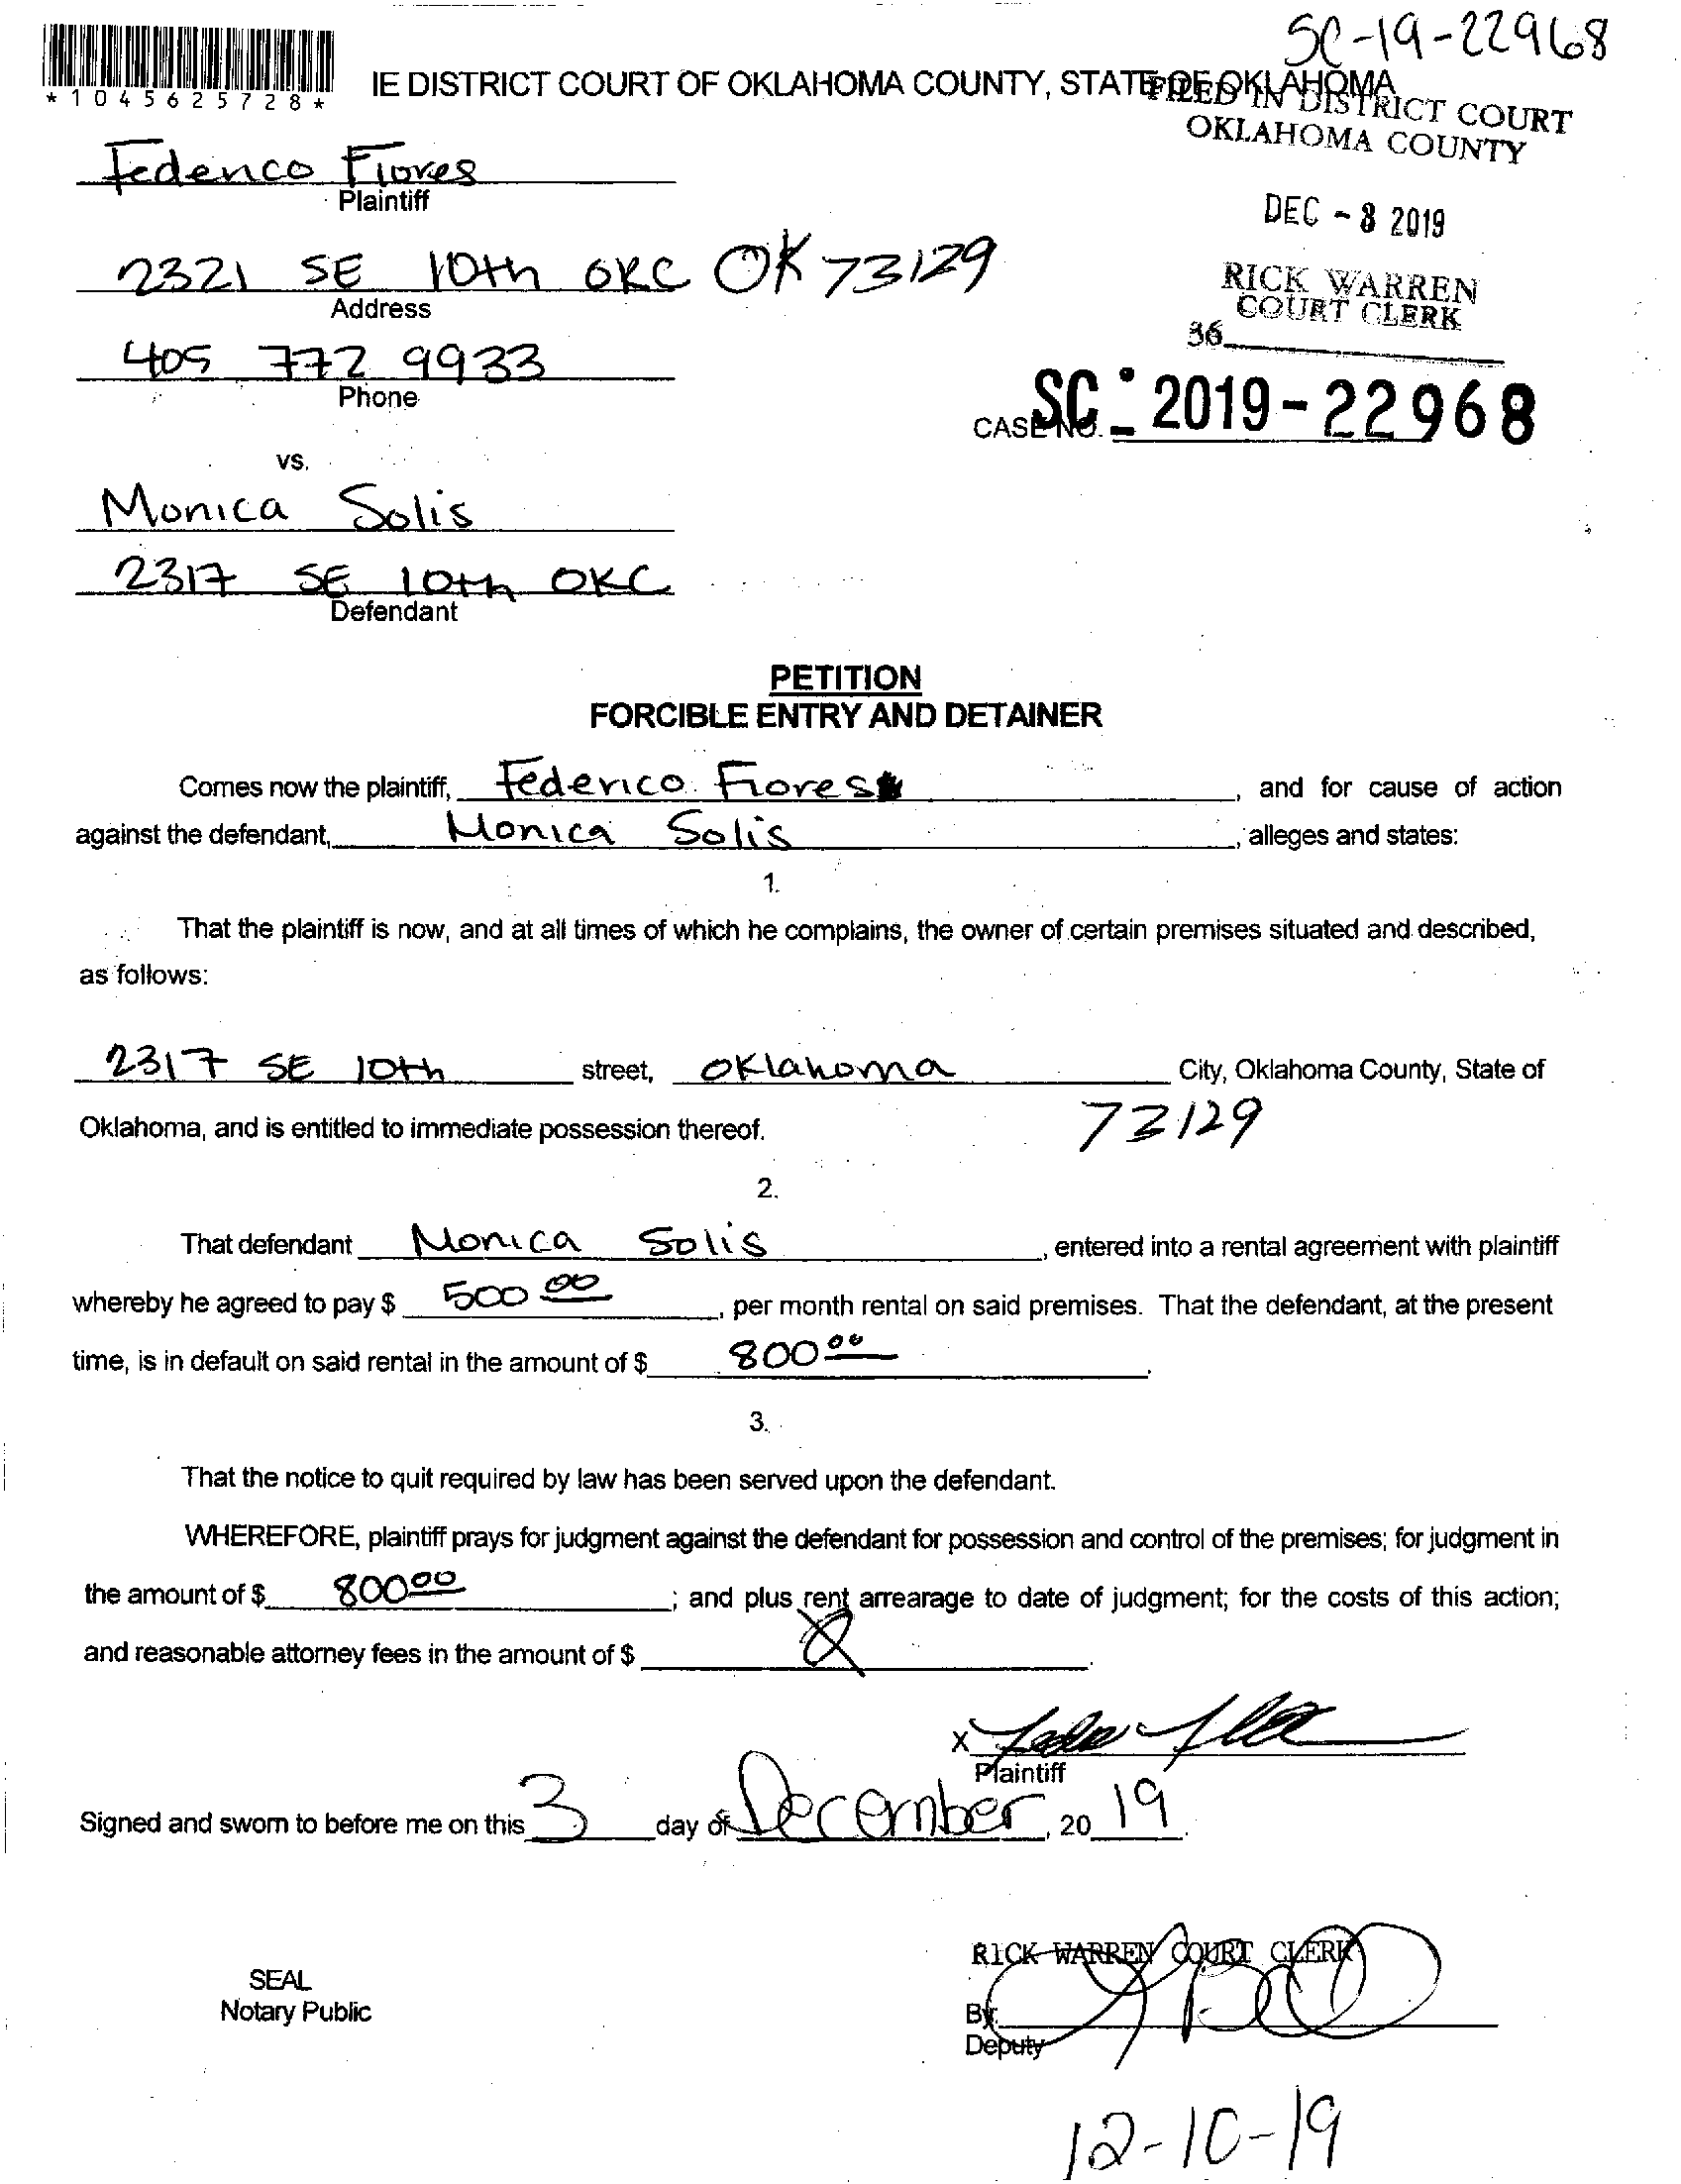 SC-19-22968
*1045625728*
IE DISTRICT COURT OF OKLAHOMA COUNTY, STATE OF OKLAHOMA
FILED IN DISTRICT COURT
OKLAHOMA COUNTY
Federico Flores
Plaintiff
DEC - 3 2019
2321 SE 10th OKC OK 73129
Address
RICK WARREN
COURT CLERK
36
405 772 9933
Phone
CASE NO. SC - 2019-22968
vs.
Monica Solis
2317 SE 10th OKC
Defendant
PETITION
FORCIBLE ENTRY AND DETAINER
Comes now the plaintiff, Federico Flores, and for cause of action
against the defendant, Monica Solis, alleges and states:
1.
That the plaintiff is now, and at all times of which he complains, the owner of certain premises situated and described,
as follows:
2317 SE 10th street, Oklahoma City, Oklahoma County, State of
Oklahoma, and is entitled to immediate possession thereof. 73129
2.
That defendant Monica Solis, entered into a rental agreement with plaintiff
whereby he agreed to pay $ 500 00, per month rental on said premises. That the defendant, at the present
time, is in default on said rental in the amount of $ 800 00.
3.
That the notice to quit required by law has been served upon the defendant.
WHEREFORE, plaintiff prays for judgment against the defendant for possession and control of the premises; for judgment in
the amount of $ 800 00; and plus rent arrearage to date of judgment; for the costs of this action;
and reasonable attorney fees in the amount of $.
X
Plaintiff
Signed and sworn to before me on this 3 day of December, 20 19.
RICK WARREN COURT CLERK
SEAL
Notary Public
By:
Deputy
12-10-19